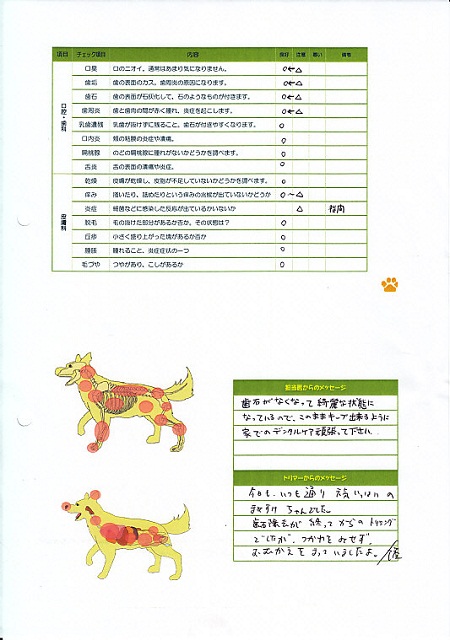 項目 チェック項目 内容 良好 注意 悪い 備考
口腔・歯科
口臭 口のニオイ。通常はあまり気になりません。 ○←△
歯垢 歯の表面のカス。歯周炎の原因になります。 ○←△
歯石 歯の表面が石灰化して、石のようなものが付きます。 ○←△
歯周炎 歯と歯肉の間が赤く腫れ、炎症を起こします。 ○←△
乳歯遺残 乳歯が抜けずに残ること。歯石が付きやすくなります。 ○
口内炎 頬の粘膜の炎症や潰瘍。 ○
扁桃腺 のどの扁桃腺に腫れがないかどうかを調べます。 ○
舌炎 舌の表面の潰瘍や炎症。 ○
皮膚科
乾燥 皮膚が乾燥し、皮脂が不足していないかどうかを調べます。 ○
痒み 掻いたり、舐めたりという痒みの兆候が出ていないかどうか ○~△
炎症 細菌などに感染した反応が出ているかいないか △ 指間
脱毛 毛の抜けた部分があるか否か。その状態は? ○
丘疹 小さく盛り上がった塊があるか否か ○
腫脹 腫れること。炎症症状の一つ ○
毛づや つやがあり、こしがあるか ○
担当者からのメッセージ
歯石がなくなって綺麗な状態に
なっているので、このままキープ出来るように
家でのデンタルケア頑張って下さい。
トリマーからのメッセージ
今日も、いつも通り 元気いっぱいの
ちゃんでした。
歯石除去が 終ってからのトリミング
でしたが、つかれをみせず、
おむかえをまっていましたよ。